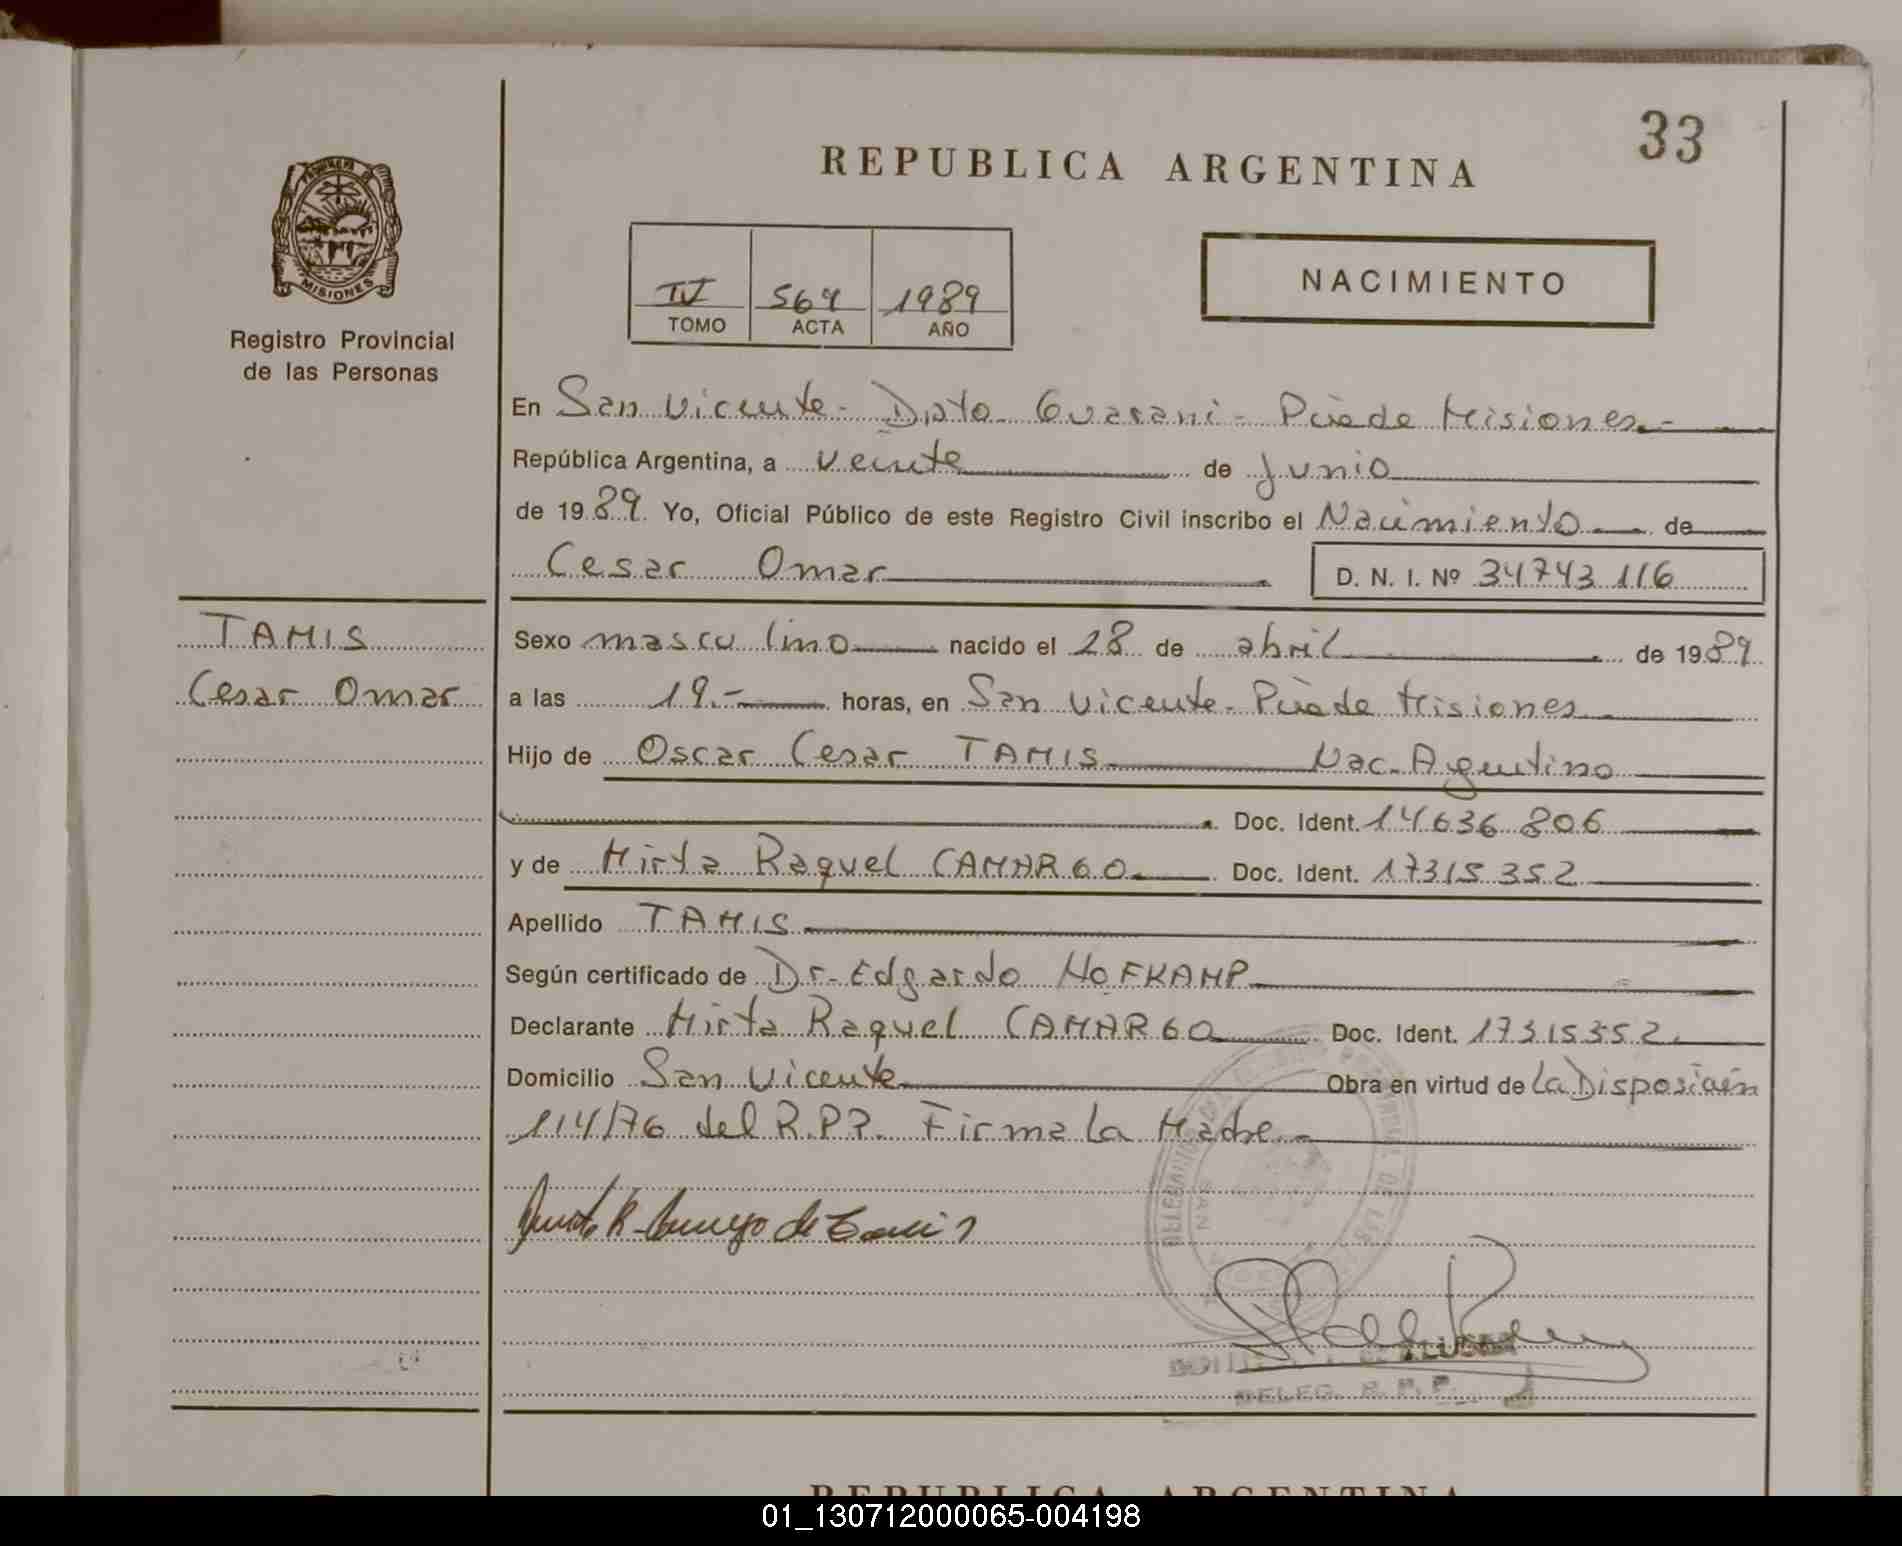 33
REPUBLICA ARGENTINA
NACIMIENTO
IV 564 1989
TOMO ACTA AÑO
MISIONES
Registro Provincial
de las Personas
En San Vicente - Dpto Guarani - Pcia de Misiones.-
República Argentina, a veinte de junio
de 1989. Yo, Oficial Público de este Registro Civil inscribo el Nacimiento de
Cesar Omar D. N. I. Nº 34743116
TAMIS
Cesar Omar
Sexo masculino nacido el 28 de abril de 1989
a las 19.- horas, en San Vicente - Pcia de Misiones
Hijo de Oscar Cesar TAMIS Nac. Argentino
Doc. Ident. 14636806
y de Mirta Raquel CAMARGO Doc. Ident. 17315352
Apellido TAMIS
Según certificado de Dr. Edgardo HOFKAMP
Declarante Mirta Raquel CAMARGO Doc. Ident. 17315352.
Domicilio San Vicente Obra en virtud de La Disposición
114/76 del R.P.P. Firma La Madre.
DELEG. R. P. P.
REPUBLICA ARGENTINA
01_130712000065-004198